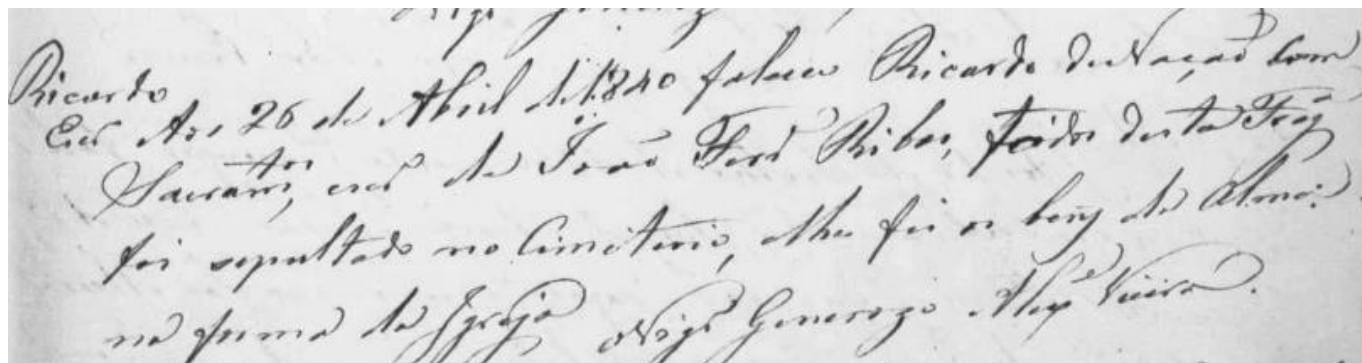 Ricardo
Esc.º Aos 26 de Abril de 1840 faleceu Ricardo de Nação com
Sacram.tos, esc.º de João Ferr.ª Ribas, todos desta Freg.ª
foi sepultado no Cimiterio, e lhe fis os bens da Alma
na forma da Igreja O Vig.º Generozo Alex.e Vieira.